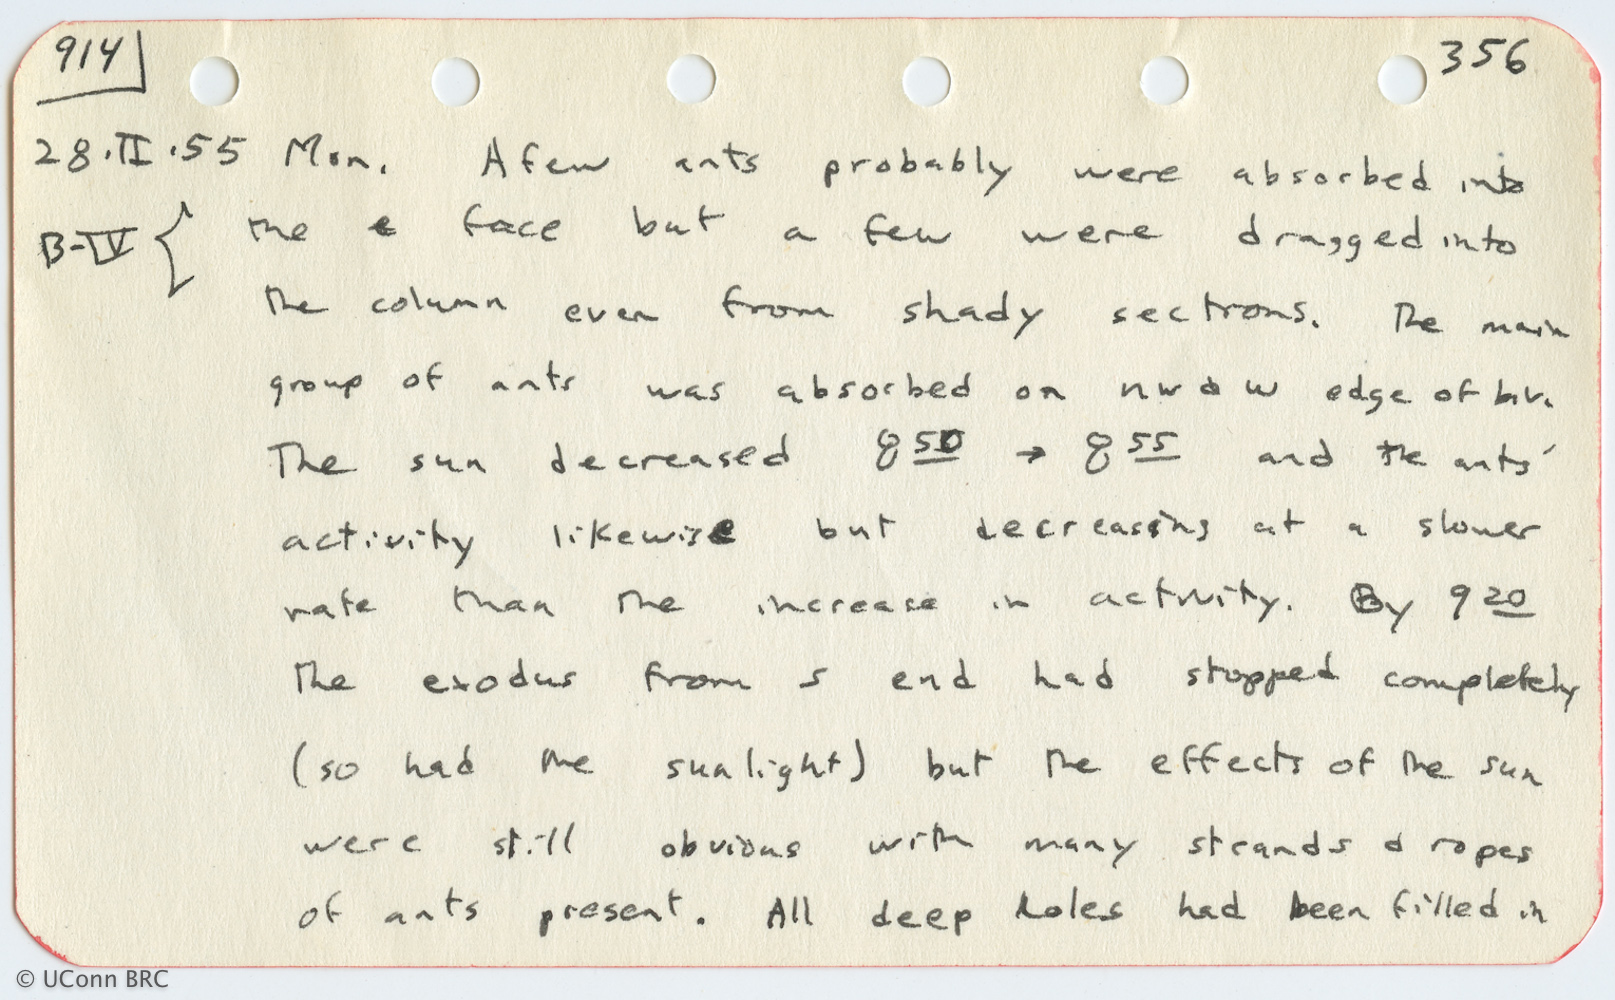 914 356
28.II.55 Mon. A few ants probably were absorbed into
B-IV { the e face but a few were dragged into
the column even from shady sections. The main
group of ants was absorbed on nw & w edge of biv.
The sun decreased 8 50 → 8 55 and the ants'
activity likewise but decreasing at a slower
rate than the increase in activity. By 9 20
the exodus from s end had stopped completely
(so had the sunlight) but the effects of the sun
were still obvious with many strands & ropes
of ants present. All deep holes had been filled in
© UConn BRC